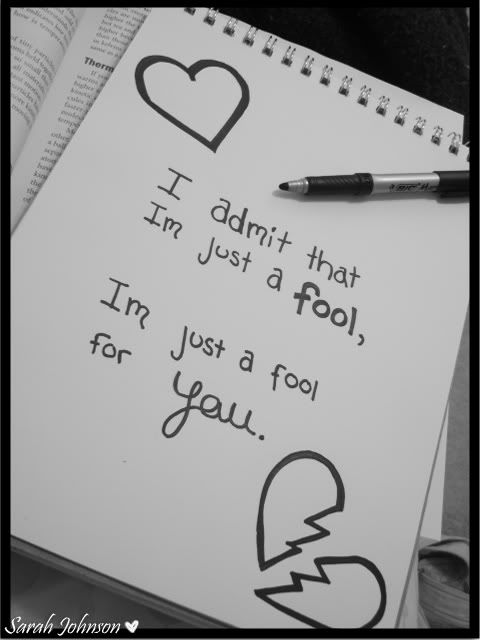 Therm
I admit that
Im just a fool,
Im just a fool
for you.
BIC
Sarah Johnson